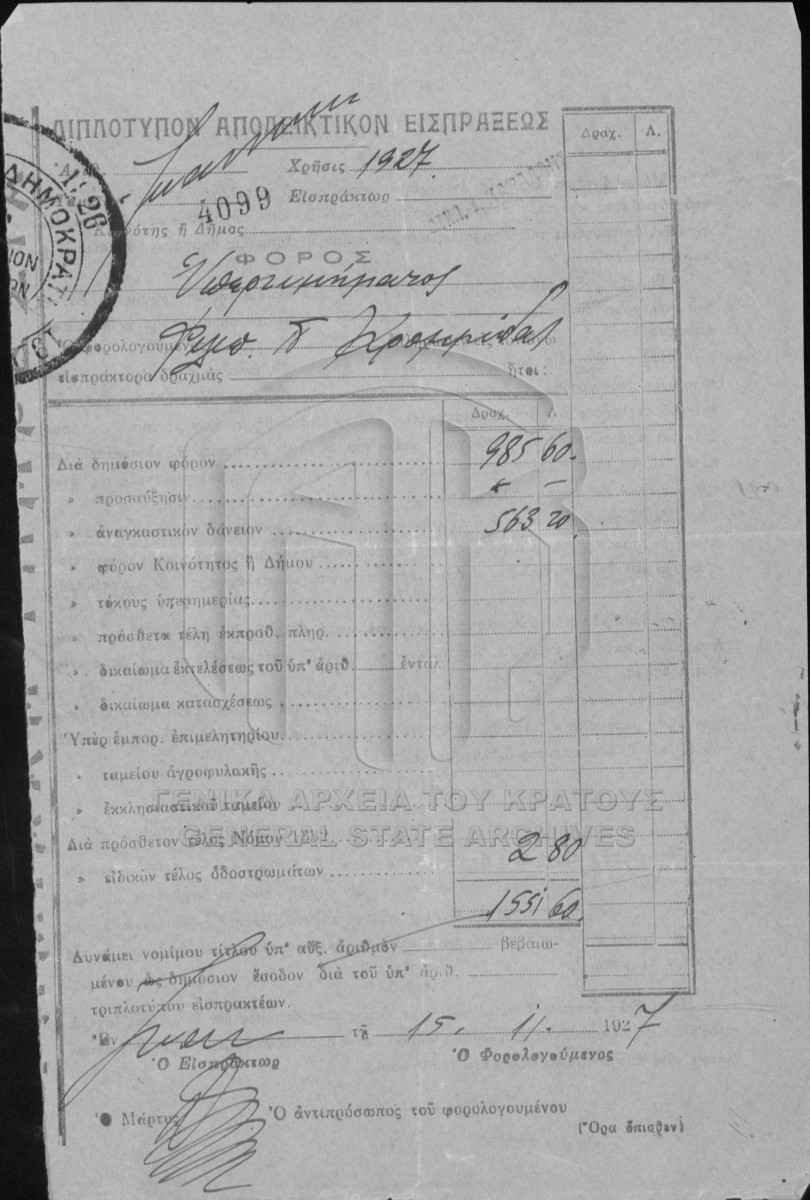 ΔΙΠΛΟΤΥΠΟΝ ΑΠΟΔΕΙΚΤΙΚΟΝ ΕΙΣΠΡΑΞΕΩΣ
Δραχ. Λ.
Χρῆσις 1927.
4099 Εἰσπράκτωρ
Κοινότης ἢ Δῆμος
ΔΗΜΟΚΡΑΤΙ
ΦΟΡΟΣ
Ὑπερτιμήματος
Ὁ φορολογούμεν
εἰσπράκτορα δραχμὰς ἤτοι:
Δραχ. Λ.
Διὰ δημόσιον φόρον 985 60
» προσαύξησιν
» ἀναγκαστικὸν δάνειον 563 20
» φόρον Κοινότητος ἢ Δήμου
» τόκους ὑπερημερίας
» πρόσθετα τέλη ἐκπροθ. πληρ.
» δικαίωμα ἐκτελέσεως τοῦ ὑπ' ἀριθ. ἐνταλ
» δικαίωμα κατασχέσεως
Ὑπὲρ ἐμπορ. ἐπιμελητηρίου
» ταμείου ἀγροφυλακῆς
ΓΕΝΙΚΑ ΑΡΧΕΙΑ ΤΟΥ ΚΡΑΤΟΥΣ
» ἐκκλησιαστικοῦ ταμείου
GENERAL STATE ARCHIVES
Διὰ πρόσθετον τέλος Νόμου 2 80
» εἰδικὸν τέλος ὁδοστρωμάτων
1551 60
Δυνάμει νομίμου τίτλου ὑπ' αὔξ. ἀριθμὸν βεβαιω-
μένου ὡς δημόσιον ἔσοδον διὰ τοῦ ὑπ' ἀριθ.
τριπλοτύπου εἰσπρακτέων.
Ἐν τῇ 15. 11. 1927
Ὁ Εἰσπράκτωρ Ὁ Φορολογούμενος
Ὁ Μάρτυς Ὁ ἀντιπρόσωπος τοῦ φορολογουμένου
(Ὅρα ὄπισθεν)